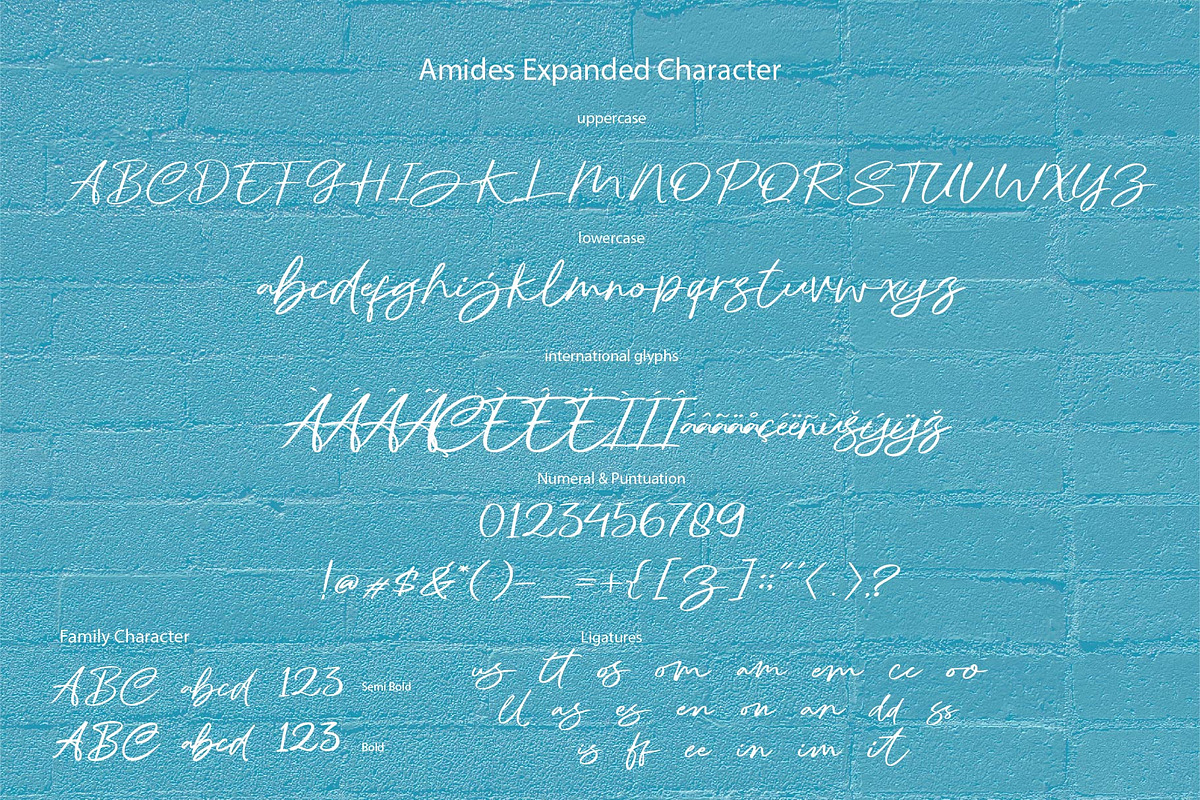 Amides Expanded Character
uppercase
ABCDEFGHIJKLMNOPQRSTUVWXYZ
lowercase
abcdefghijklmnopqrstuvwxyz
international glyphs
Numeral & Puntuation
0123456789
Family Character
ABC abcd 123 Semi Bold
ABC abcd 123 Bold
Ligatures
us tt os om am em cc oo
ll as es en on an dd ss
is ff ee in im it